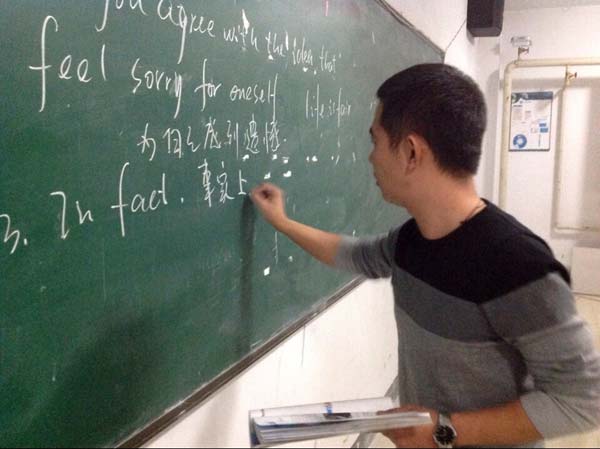 you agree with the idea that
feel sorry for oneself
life is fair
为自己感到遗憾.
3. In fact. 事实上